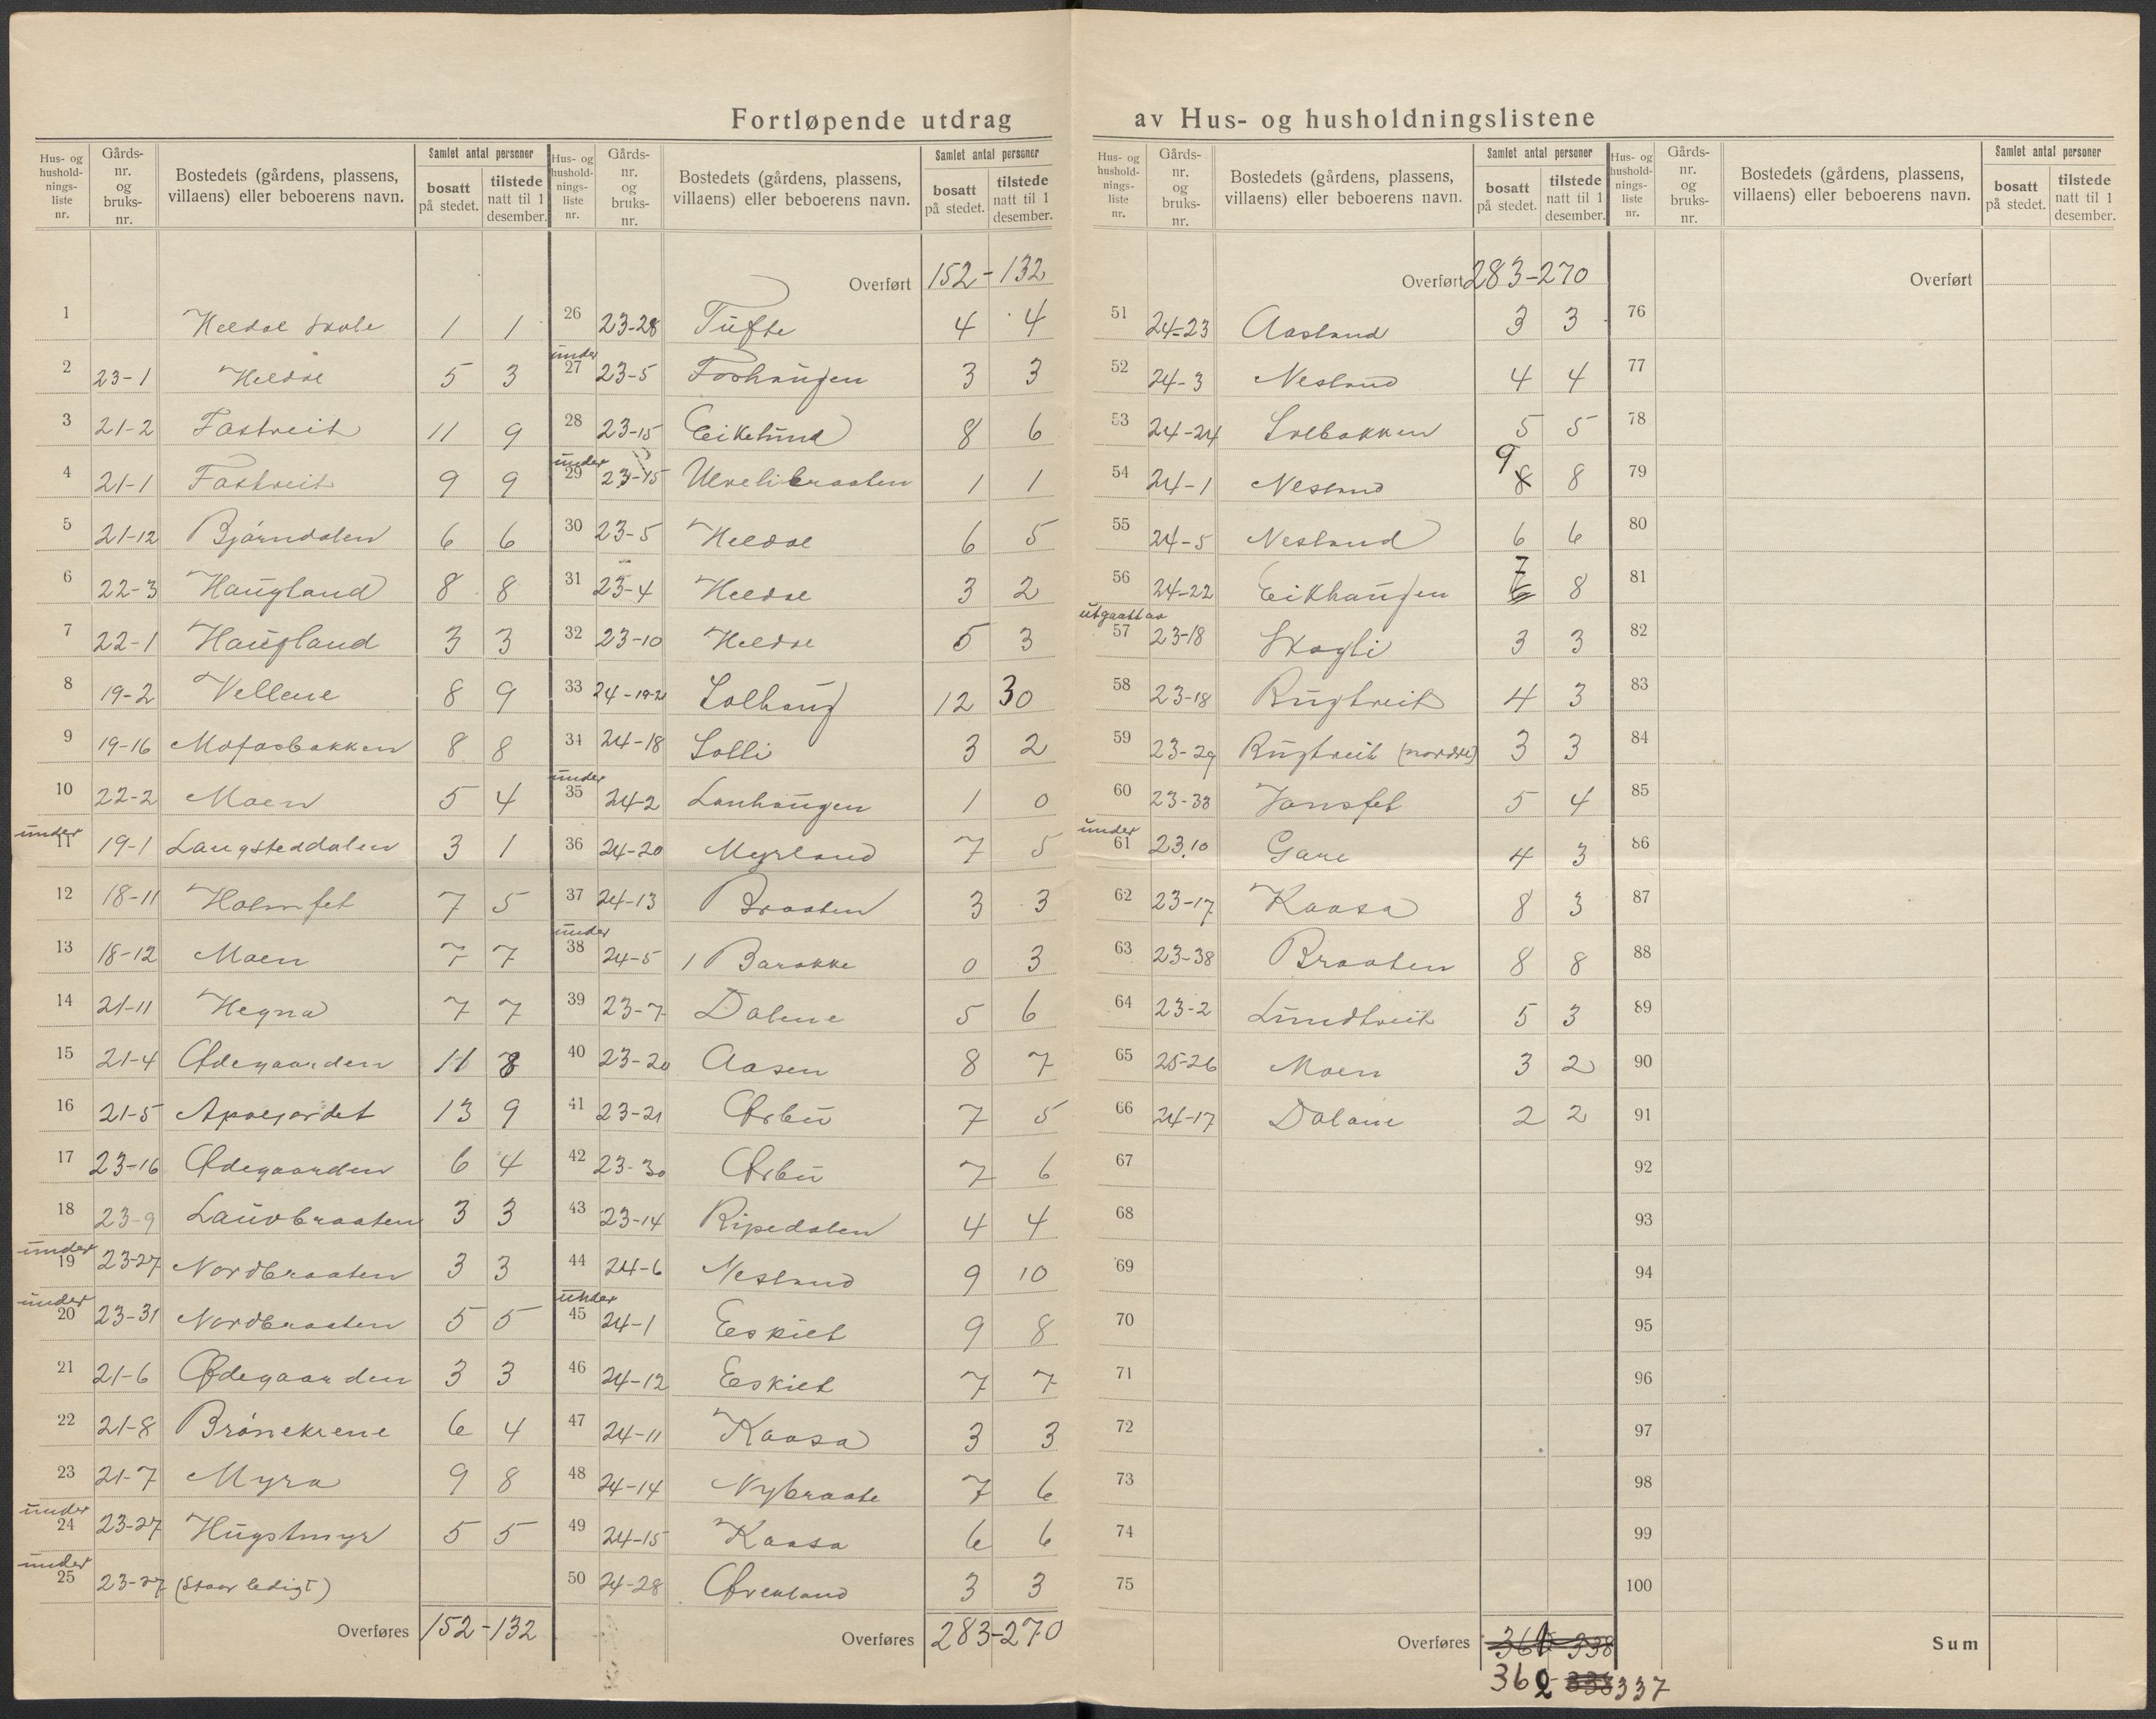 Fortløpende utdrag av Hus- og husholdningslistene
Hus- og hushold-nings-liste nr. Gårds-nr. og bruks-nr. Bostedets (gårdens, plassens, villaens) eller beboerens navn. Samlet antal personer bosatt på stedet. tilstede natt til 1 desember.
1 Heldal Skole 1 1
2 23-1 Heldal 5 3
3 21-2 Fastveit 11 9
4 21-1 Fastveit 9 9
5 21-12 Bjørndalen 6 6
6 22-3 Haugland 8 8
7 22-1 Haugland 3 3
8 19-2 Vellene 8 9
9 19-16 Mofasbakken 8 8
10 22-2 Moen 5 4
under
11 19-1 Langsteddalen 3 1
12 18-11 Holmfet 7 5
13 18-12 Moen 7 7
14 21-11 Hegna 7 7
15 21-4 Ødegaarden 11 8
16 21-5 13 9
17 23-16 Ødegaarden 6 4
18 23-9 Lauvbraaten 3 3
under
19 23-27 Nordbraaten 3 3
under
20 23-31 Nordbraaten 5 5
21 21-6 Ødegaarden 3 3
22 21-8 6 4
23 21-7 Myra 9 8
under
24 23-27 Hugstmyr 5 5
under
25 23-27 (Staar ledigt)
Overføres 152-132
Hus- og hushold-nings-liste nr. Gårds-nr. og bruks-nr. Bostedets (gårdens, plassens, villaens) eller beboerens navn. Samlet antal personer bosatt på stedet. tilstede natt til 1 desember.
Overført 152-132
26 23-28 Tufte 4 4
under
27 23-5 Foshaugen 3 3
28 23-15 Eikelund 8 6
under
29 23-15 Ulvelibraaten 1 1
30 23-5 Heldal 6 5
31 23-4 Heldal 3 2
32 23-10 Heldal 5 3
33 24-19-2 Solhaug 12 30
34 24-18 Solli 3 2
under
35 24-2 Lanhaugen 1 0
36 24-20 Myrland 7 5
37 24-13 Braaten 3 3
under
38 24-5 1 Barakke 0 3
39 23-7 Dalene 5 6
40 23-20 Aasen 8 7
41 23-21 Ørbu 7 5
42 23-30 Ørbu 7 6
43 23-14 Ripedalen 4 4
44 24-6 Nesland 9 10
under
45 24-1 Eskilt 9 8
46 24-12 Eskilt 7 7
47 24-11 Kaasa 3 3
48 24-14 Nybraate 7 6
49 24-15 Kaasa 6 6
50 24-28 Øvenland 3 3
Overføres 283-270
Hus- og hushold-nings-liste nr. Gårds-nr. og bruks-nr. Bostedets (gårdens, plassens, villaens) eller beboerens navn. Samlet antal personer bosatt på stedet. tilstede natt til 1 desember.
Overført 283-270
51 24-23 Aasland 3 3
52 24-3 Nesland 4 4
53 24-24 Solbakken 5 5
54 24-1 Nesland 9 8 8
55 24-5 Nesland 6 6
56 24-22 Eikhaugen 7 8
utgaatt av
57 23-18 Skogli 3 3
58 23-18 Rugtveit 4 3
59 23-29 Rugtveit (nordre) 3 3
60 23-33 Jonsfet 5 4
under
61 23.10 Gare 4 3
62 23-17 Kaasa 8 3
63 23-38 Braaten 8 8
64 23-2 Lundtveit 5 3
65 25-26 Moen 3 2
66 24-17 Dalane 2 2
67
68
69
70
71
72
73
74
75
Overføres 338
362 337
Hus- og hushold-nings-liste nr. Gårds-nr. og bruks-nr. Bostedets (gårdens, plassens, villaens) eller beboerens navn. Samlet antal personer bosatt på stedet. tilstede natt til 1 desember.
Overført
76
77
78
79
80
81
82
83
84
85
86
87
88
89
90
91
92
93
94
95
96
97
98
99
100
Sum